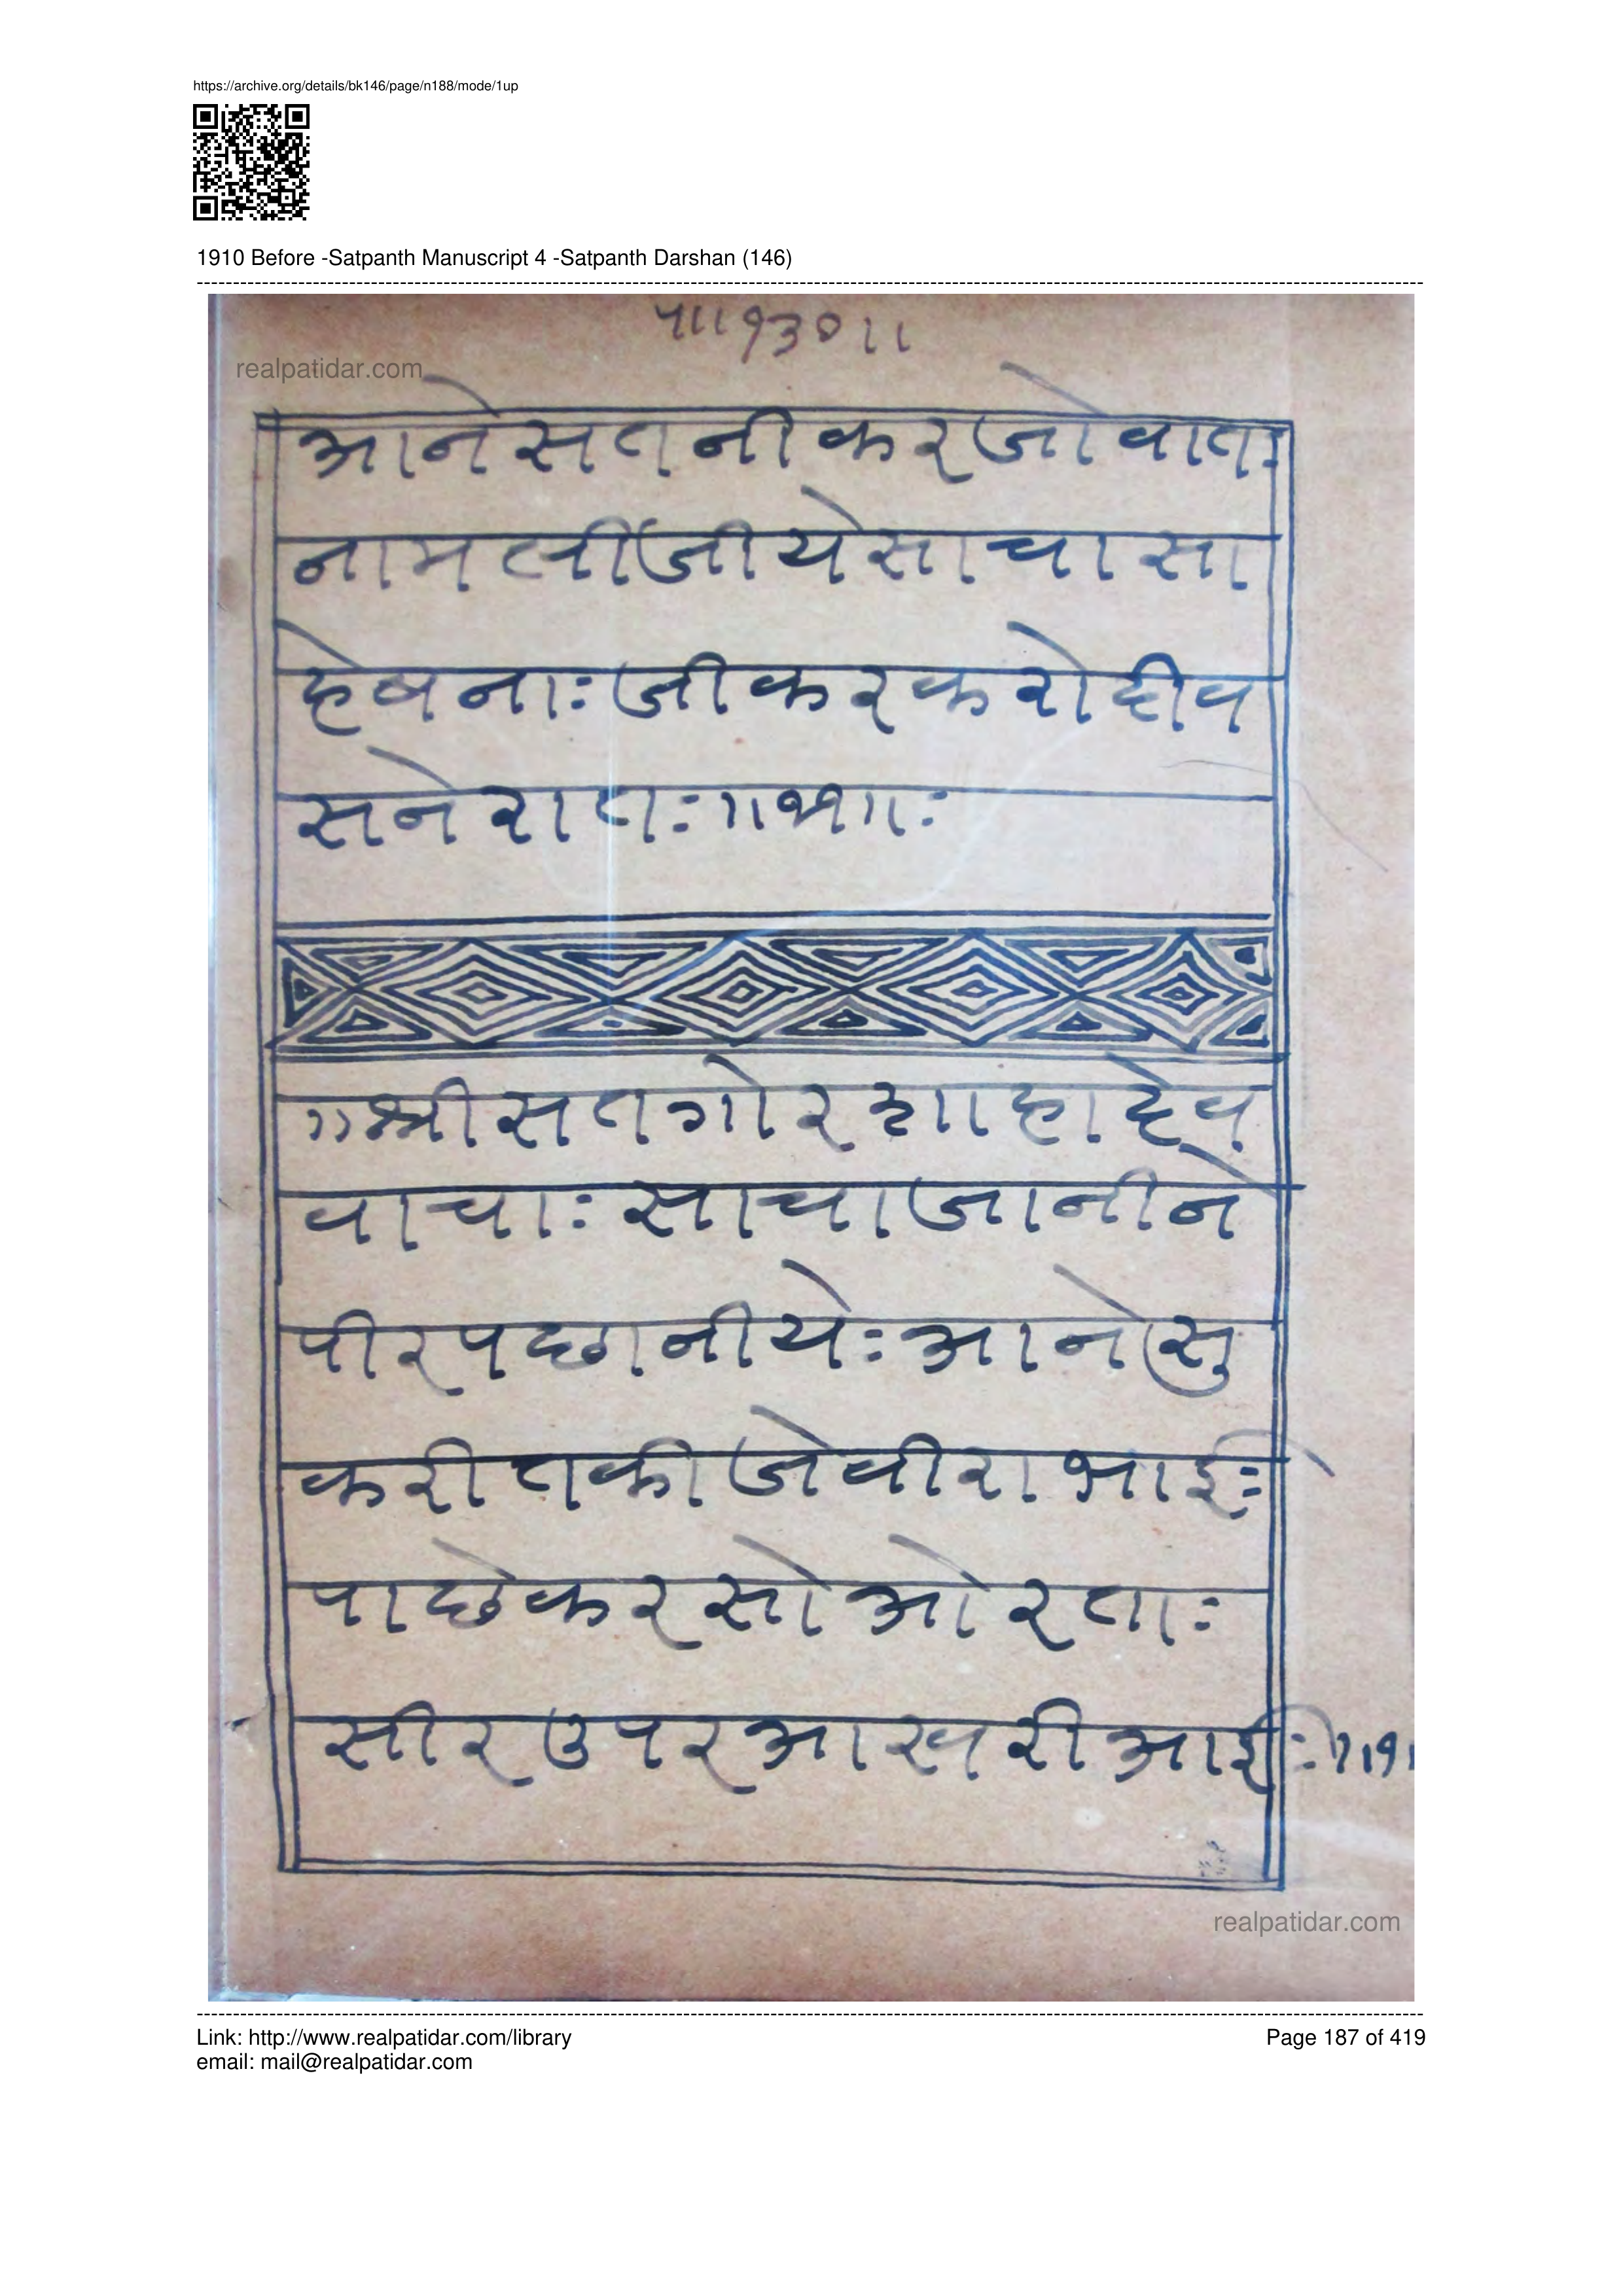 https://archive.org/details/bk146/page/n188/mode/1up
1910 Before -Satpanth Manuscript 4 -Satpanth Darshan (146)
५॥१३०॥
realpatidar.com
आनेसतनीकरजोवातः
नामलींजीयेसाचासा
हेबनाः जीकरकरोदीव
सनेरातः॥११॥:
॥श्रीसतगोरशाहादेव
वाचाः साचाजानीने
पीरपछानीयेः आनेसु
करीतकीजेवीराभाईः
पाछेकरसोओरताः
सीरउपरआखरीआईः॥१।
realpatidar.com
Link: http://www.realpatidar.com/library
Page 187 of 419
email: mail@realpatidar.com